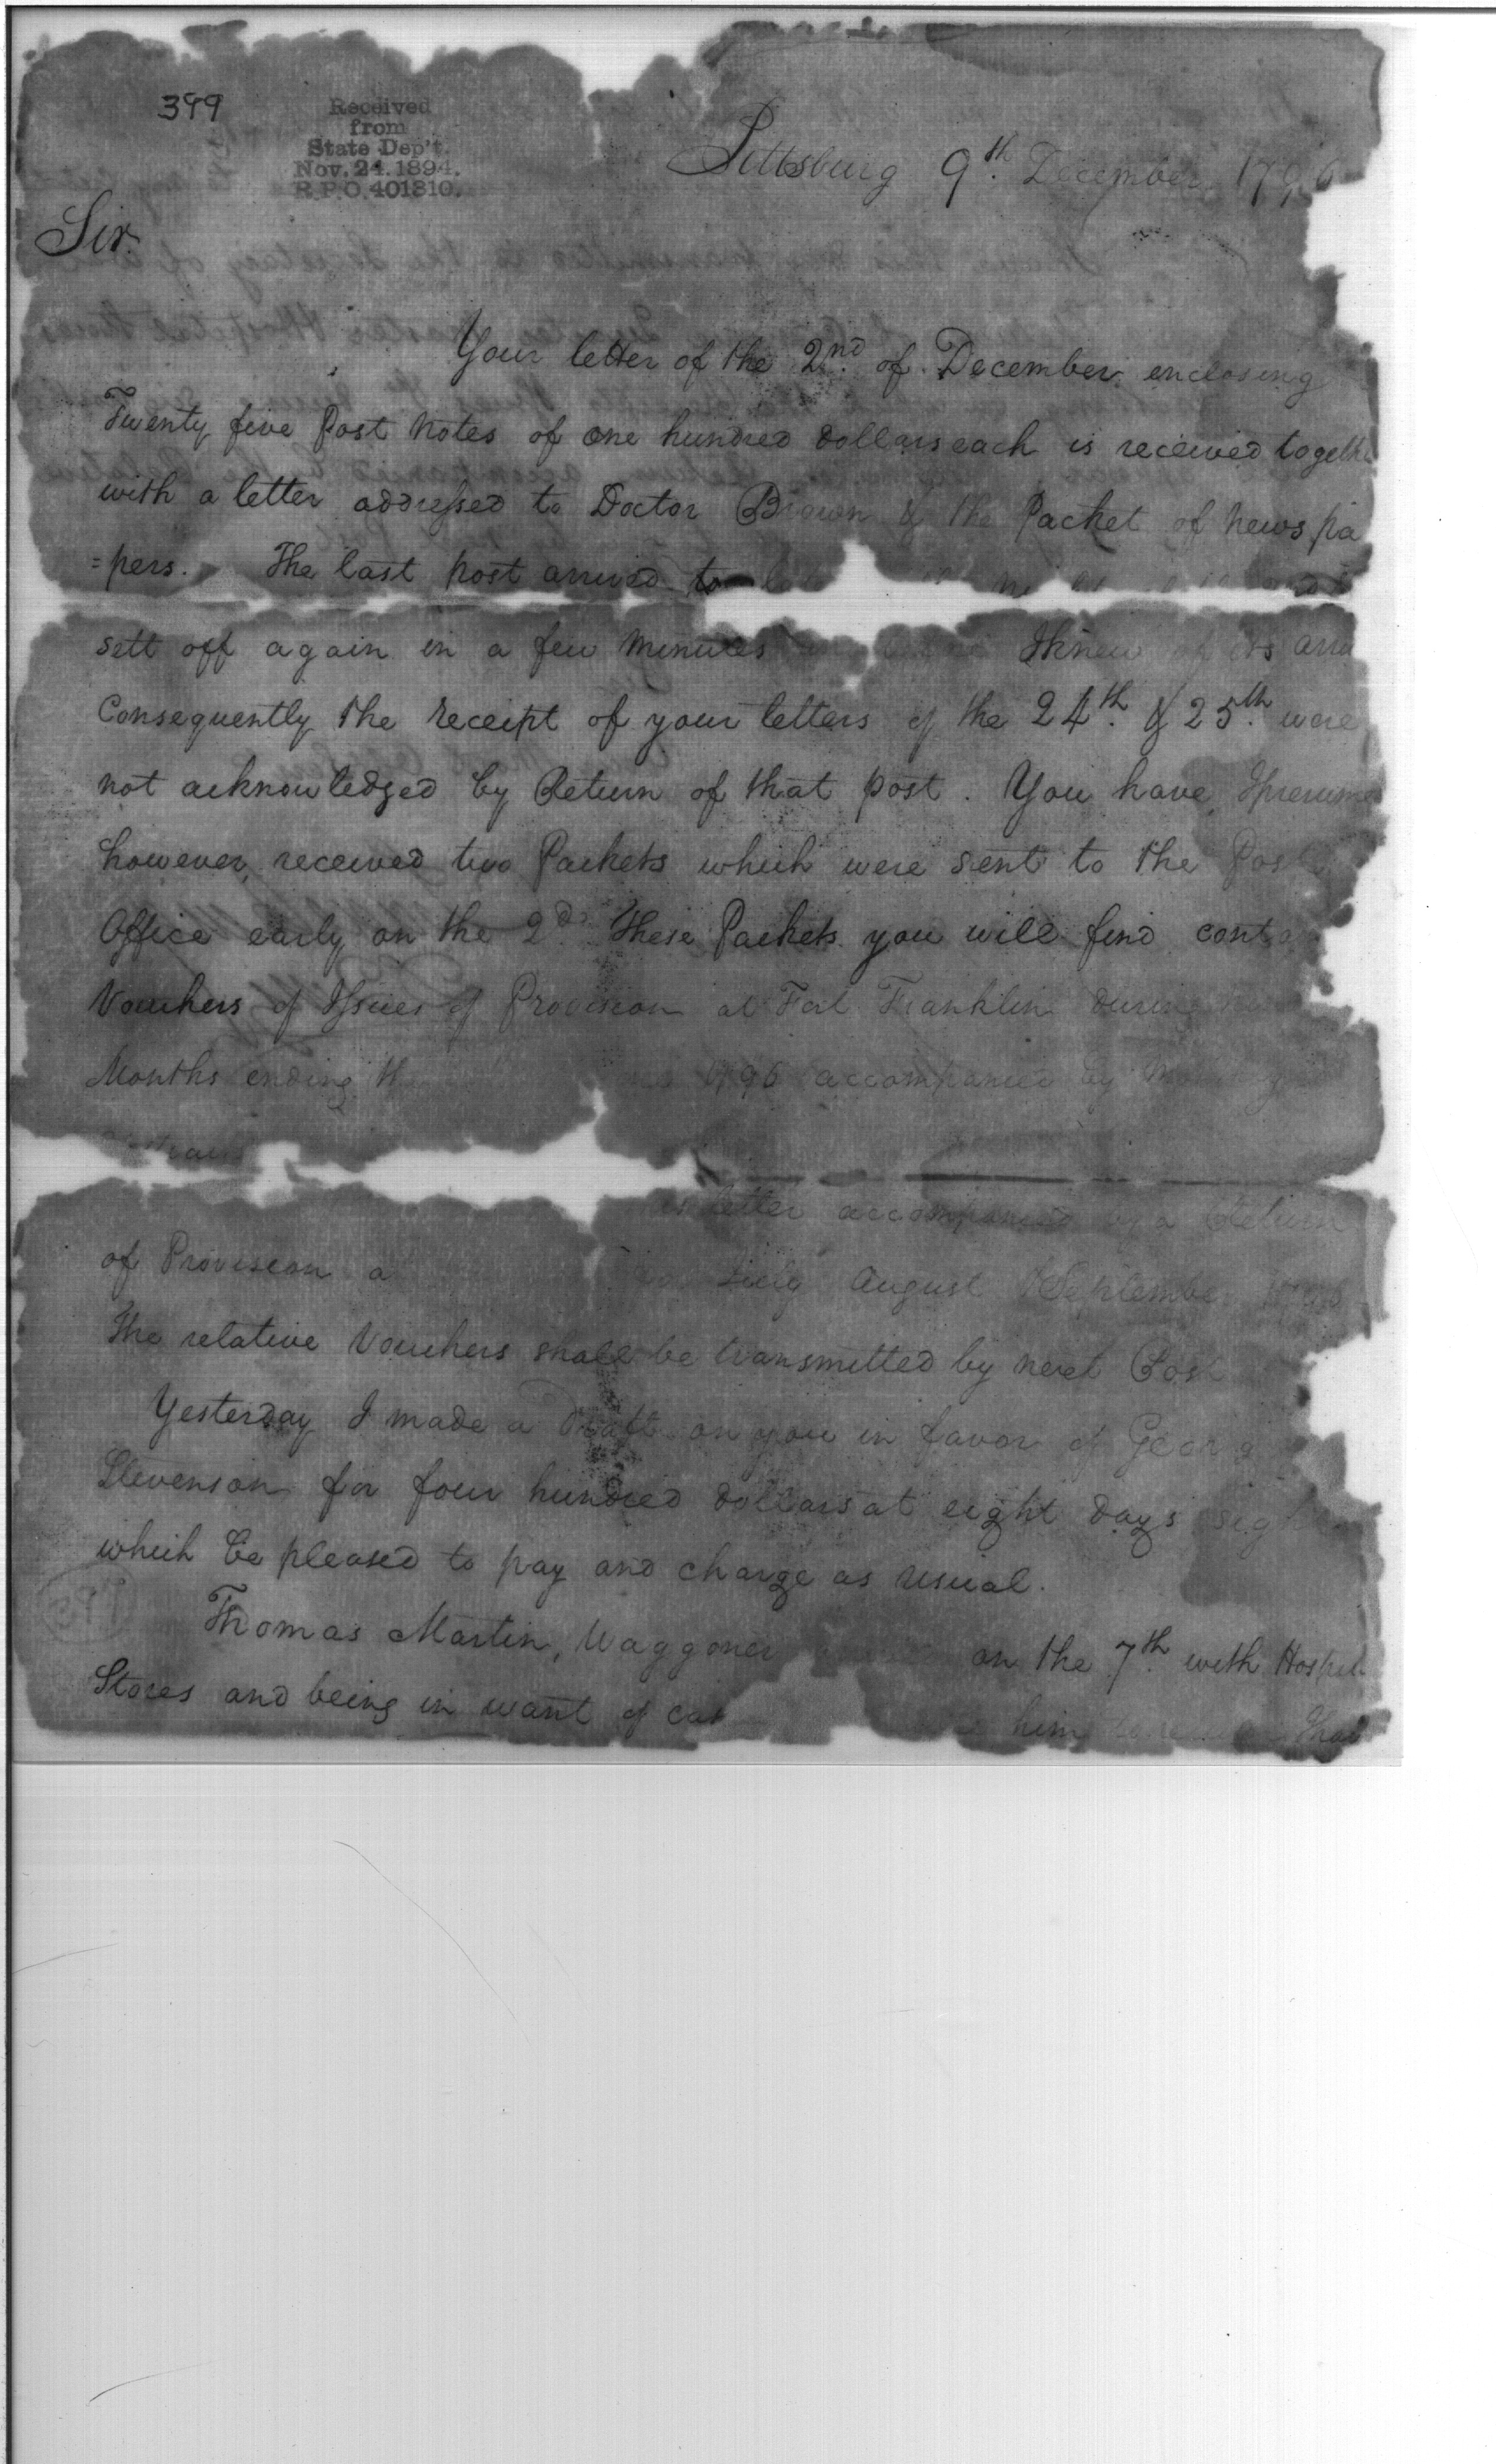 399
Received
from
State Dep't.
Nov. 24. 1894.
R.P.O. 401810.
Pittsburg 9th. December 1796
Sir.
Your letter of the 2nd. of December enclosing
Twenty five Post Notes of one hundred dollars each is received togethe
with a letter addressed to Doctor Brown & the Packet of News pa
=pers. The last post arrived to
sett off again in a few minutes I knew of its arri
Consequently the receipt of your letters of the 24th. & 25th. were
not acknowledged by Return of that post. You have I presume
however, received two Packets which were sent to the Post
Office early on the 2d. These Packets you will find conta
Vouchers of Issues of Provision at Fort Franklin during
Months ending th 1796 accompanied by
letter accompanied by a Return
of Provision a July August & September 1796
The relative Vouchers shall be transmitted by next Post
Yesterday I made a Draft on you in favor of Georg
Stevenson for four hundred dollars at eight days sigh
which be pleased to pay and charge as usual.
Thomas Martin, Waggoner on the 7th. with Hospit
Stores and being in want of cas him that